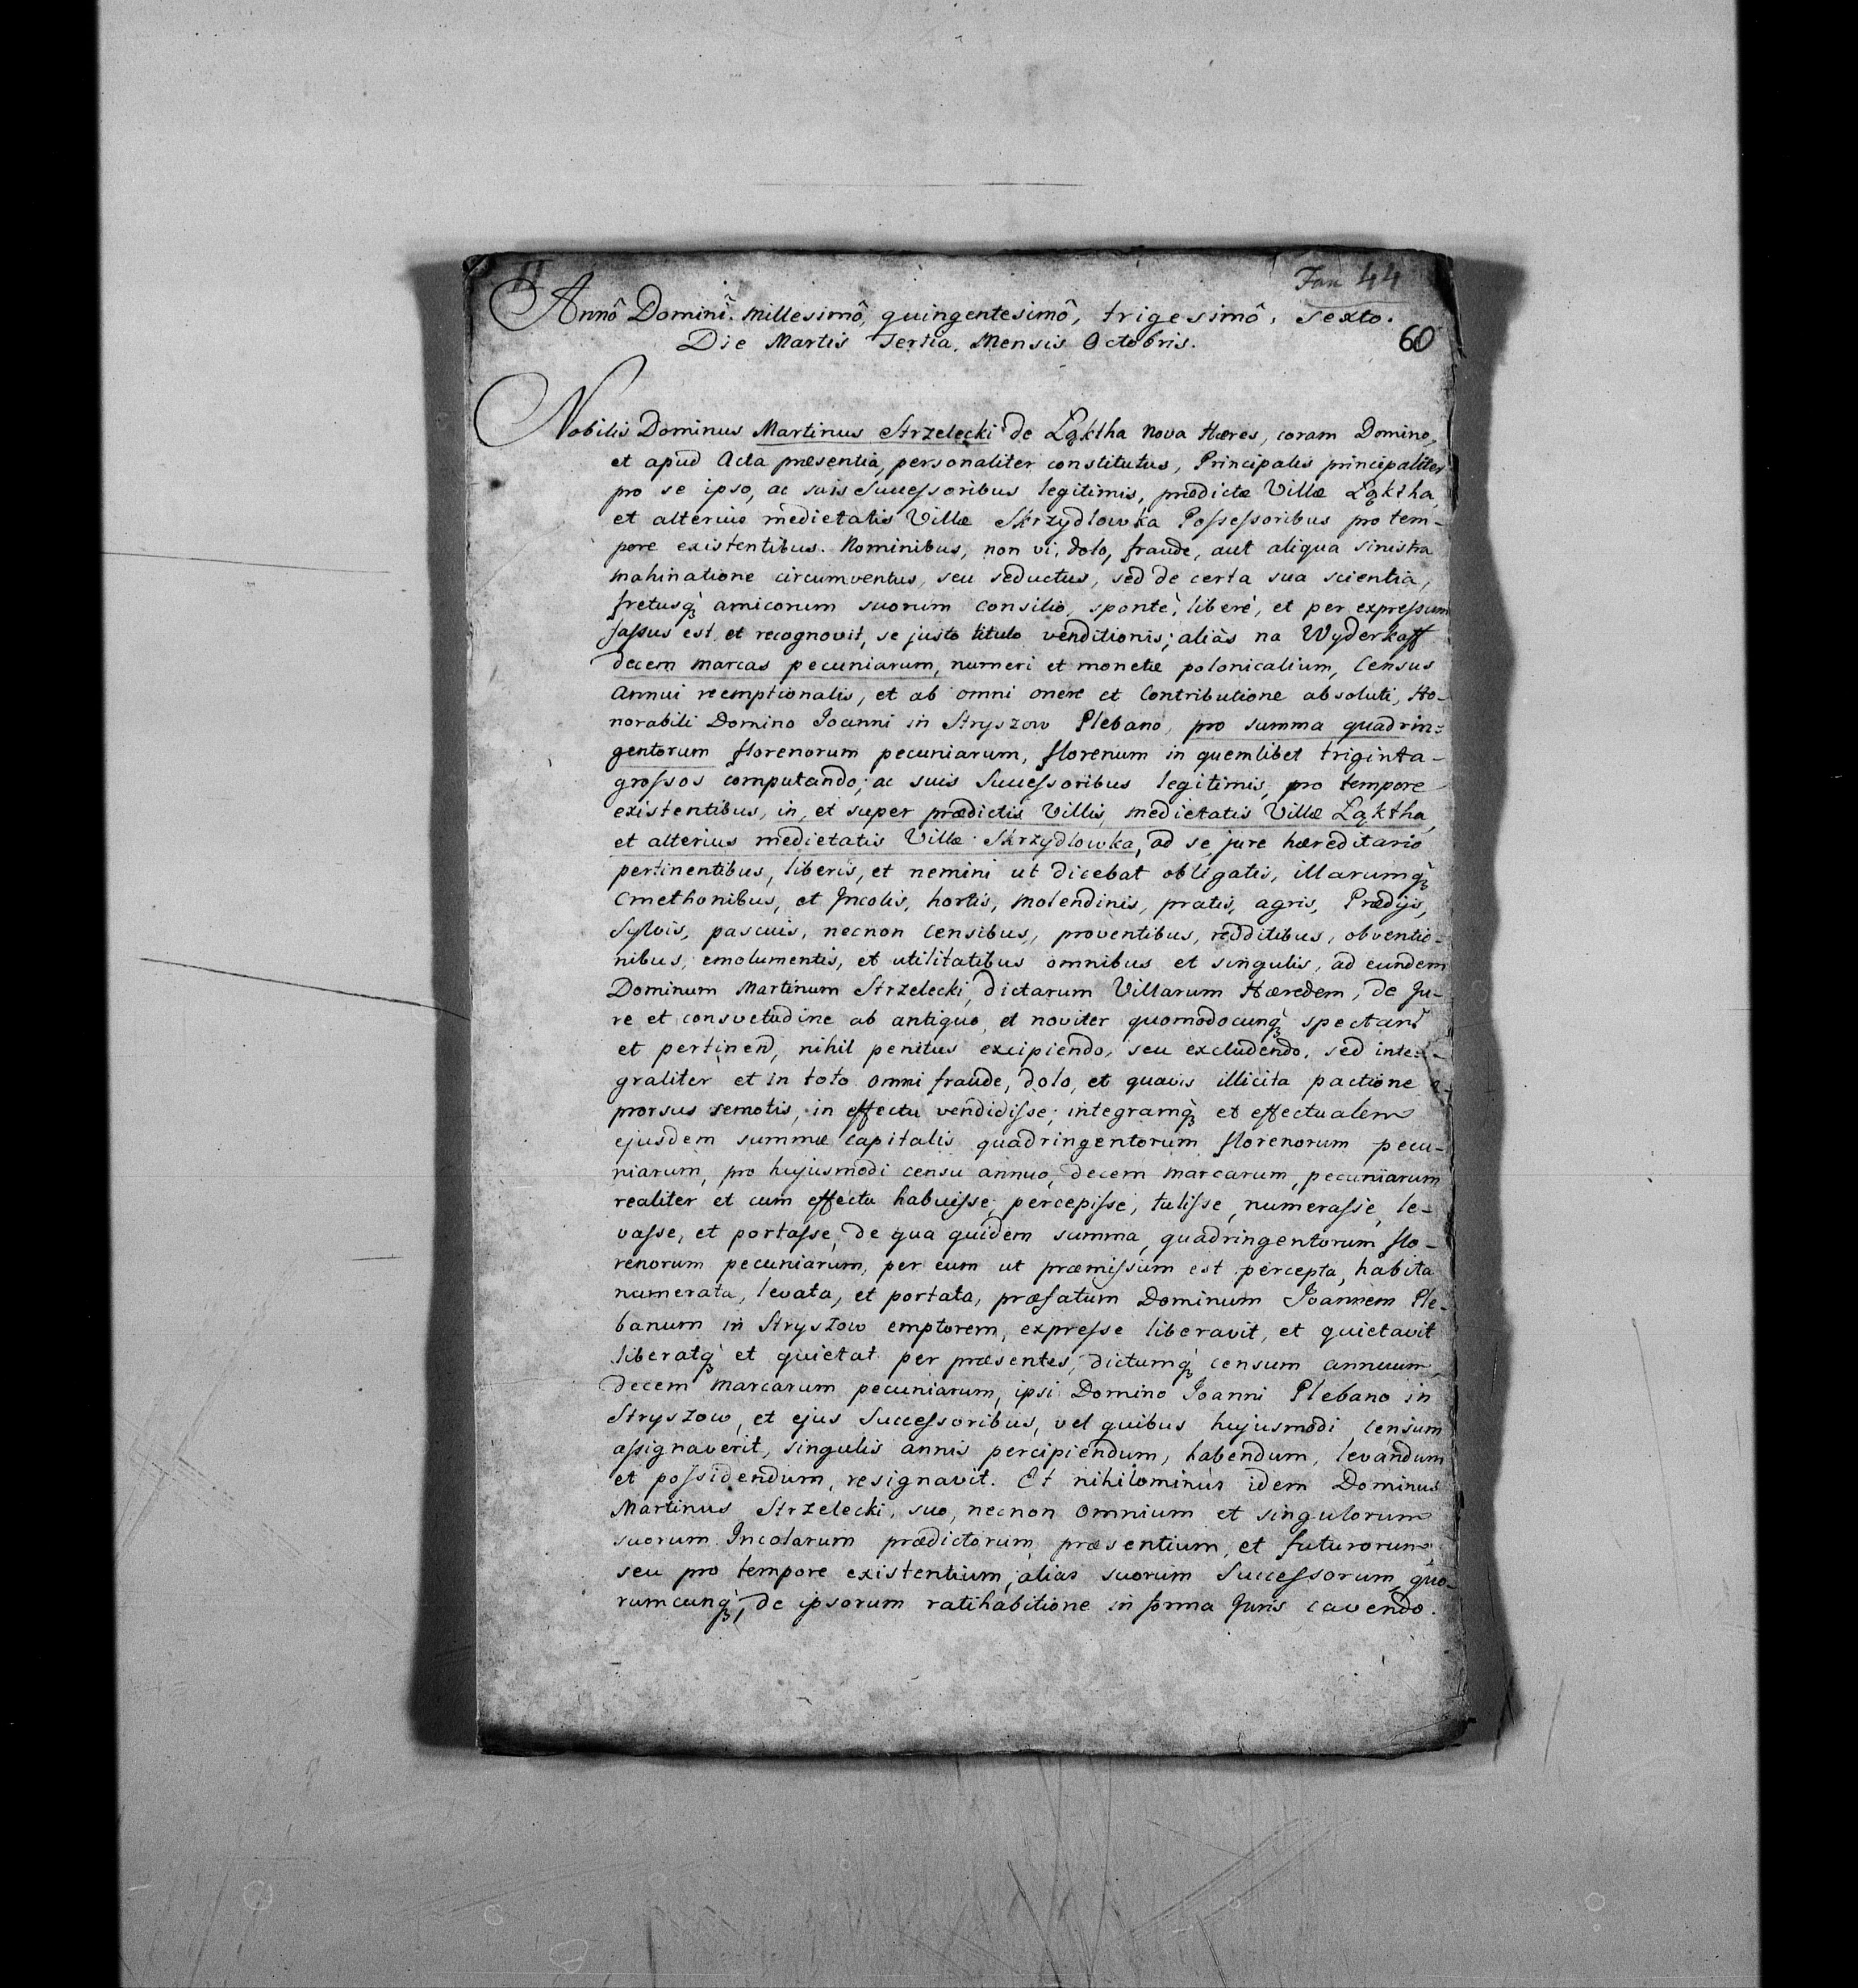 11
Fan 44
Annô Dominî. Millesimô, quingentesimô, trigesimô, Sexto.
60
Die Martis Tertia, Mensis Octobris.
Nobilis Dominus Martinus Strzelecki de Łąktha Nova Hæres, coram Domino,
et apud Acta præsentia, personaliter constitutus, Principalis principaliter
pro se ipso, ac suis Successoribus legitimis, prædictæ Villæ Łąktha,
et alterius medietatis Villæ Skrzydlowka Possessoribus pro tem-
pore existentibus. Nominibus, non vi, dolo, fraude, aut aliqua sinistra
mahinatione circumventus, seu seductus, sed de certa sua scientia,
fretusq́ꝫ amicorum suorum consilio, spontè, liberè, et per expressum
fassus est, et recognovit, se justo titulo venditionis; aliàs na Wyderkaff
decem marcas pecuniarum, numeri et monetæ polonicalium, Census
annui reemptionalis, et ab omni onere et Contributione absoluti, Ho-
norabili Domino Joanni in Stryszow Plebano, pro summa quadrin=
gentorum florenorum pecuniarum, florenum in quemlibet triginta-
grossos computando; ac suis Successoribus legitimis, pro tempore
existentibus, in, et super prædictis Villis, medietatis Villæ Łąktha,
et alterius medietatis Villæ Skrzydlowka, ad se jure hæreditario
pertinentibus, liberis, et nemini ut dicebat obligatis, illarumq́ꝫ
Cmethonibus, et Incolis, hortis, molendinis, pratis, agris, Prædijs,
Sylvis, pascuis, necnon Censibus, proventibus, redditibus, obventio-
nibus, emolumentis, et utilitatibus omnibus et singulis, ad eundem
Dominum Martinum Strzelecki, dictarum Villarum Hæredem, de Ju-
re et consvetudine ab antiquo, et noviter quomodocunq́ꝫ spectan
et pertinen, nihil penitus excipiendo, seu excludendo, sed inte-
graliter et in toto omni fraude, dolo, et quavis illicita pactione
prorsus semotis, in effectu vendidisse; integramq́ꝫ et effectualem
ejusdem summæ capitalis quadringentorum florenorum pecu-
niarum, pro hujusmodi censu annuo, decem marcarum, pecuniarum
realiter et cum effectu habuisse, percepisse, tulisse, numerasse, le-
vasse, et portasse, de qua quidem summa, quadringentorum flo-
renorum pecuniarum, per eum ut præmissum est percepta, habita
numerata, levata, et portata, præfatum Dominum Joannem Ple-
banum in Stryszow emptorem, expresse liberavit, et quietavit
liberatq́ꝫ et quietat per præsentes, dictumq́ꝫ censum annuum,
decem marcarum pecuniarum, ipsi Domino Joanni Plebano in
Stryszow, et ejus Successoribus, vel quibus hujusmodi censum
assignaverit, singulis annis percipiendum, habendum, levandum
et possidendum, resignavit. Et nihilominùs idem Dominus
Martinus Strzelecki, suo, necnon omnium et singulorum
suorum Incolarum prædictorum, præsentium, et futurorum,
seu pro tempore existentium, alias suorum Successorum, quo-
rumcunq́ꝫ, de ipsorum ratihabitione in forma Juris cavendo.